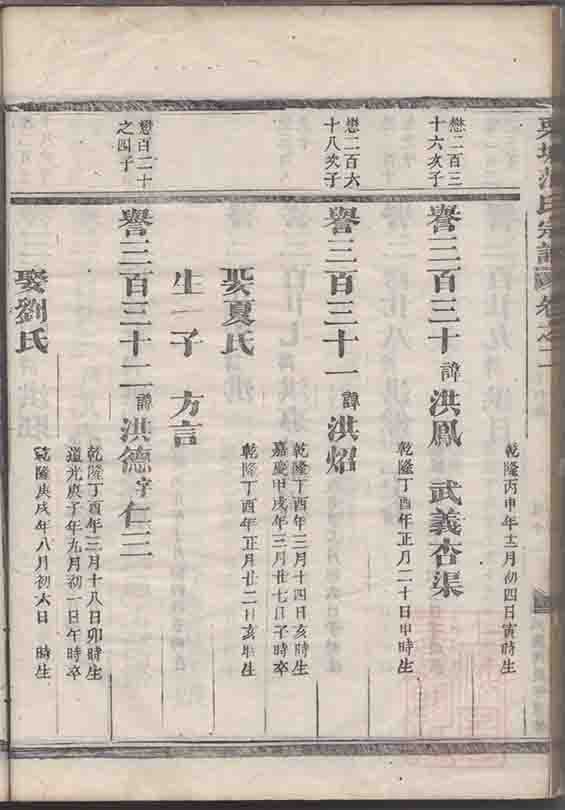 氏宗譜 卷之二
乾隆丙申年十二月初四日寅時生
懋二百三
十六次子
譽三百三十 諱 洪鳳 武義杏渠
乾隆丁酉年正月二十日申時生
懋二百六
十八次子
譽三百三十一 諱 洪焰
乾隆丁酉年三月十四日亥時生
嘉慶甲戌年三月廿七日子時卒
娶夏氏
乾隆丁酉年正月廿二日亥時生
生一子 方言
懋百二十
之四子
譽三百三十二 諱 洪德 字 仁三
乾隆丁酉年三月十八日卯時生
道光庚子年九月初一日午時卒
娶劉氏
乾隆庚戌年八月初六日 時生